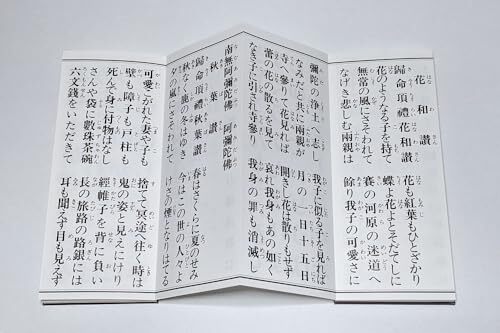 花和讃
歸命頂禮花和讃　花も紅葉もひとざかり
花のようなる子を持て　蝶よ花よとそだてしに
無常の風にさそわれて　賽の河原の迷道へ
なげき悲しむ兩親は　餘り我子の可愛さに
彌陀の浄土へ志し　我子に似る子を見れば
なみだと共に兩親が　月の一日十五日
寺へ參りて花見れば　開きし花は散りもせず
蕾の花の散るを見て　哀れ我身もあの如く
なき子に引され寺參り　我身の罪も消滅し
南無阿彌陀佛　阿彌陀佛
秋葉讃
歸命頂禮秋葉讃　春はさくらに夏のせみ
秋なく鹿の冬はゆき　今はこの世の人々よ
夕の風にさそわれて　けさの煙となりはてる
可愛こがれた妻や子も　捨てて冥途へ往く時は
壁も障子も戸柱も　鬼の姿と見えにけり
死んで身に付物はなし　經帷子を背に負い
さんや袋に數珠茶碗　長の旅路の路銀には
六文錢をいただきて　耳も聞えず目も見えず